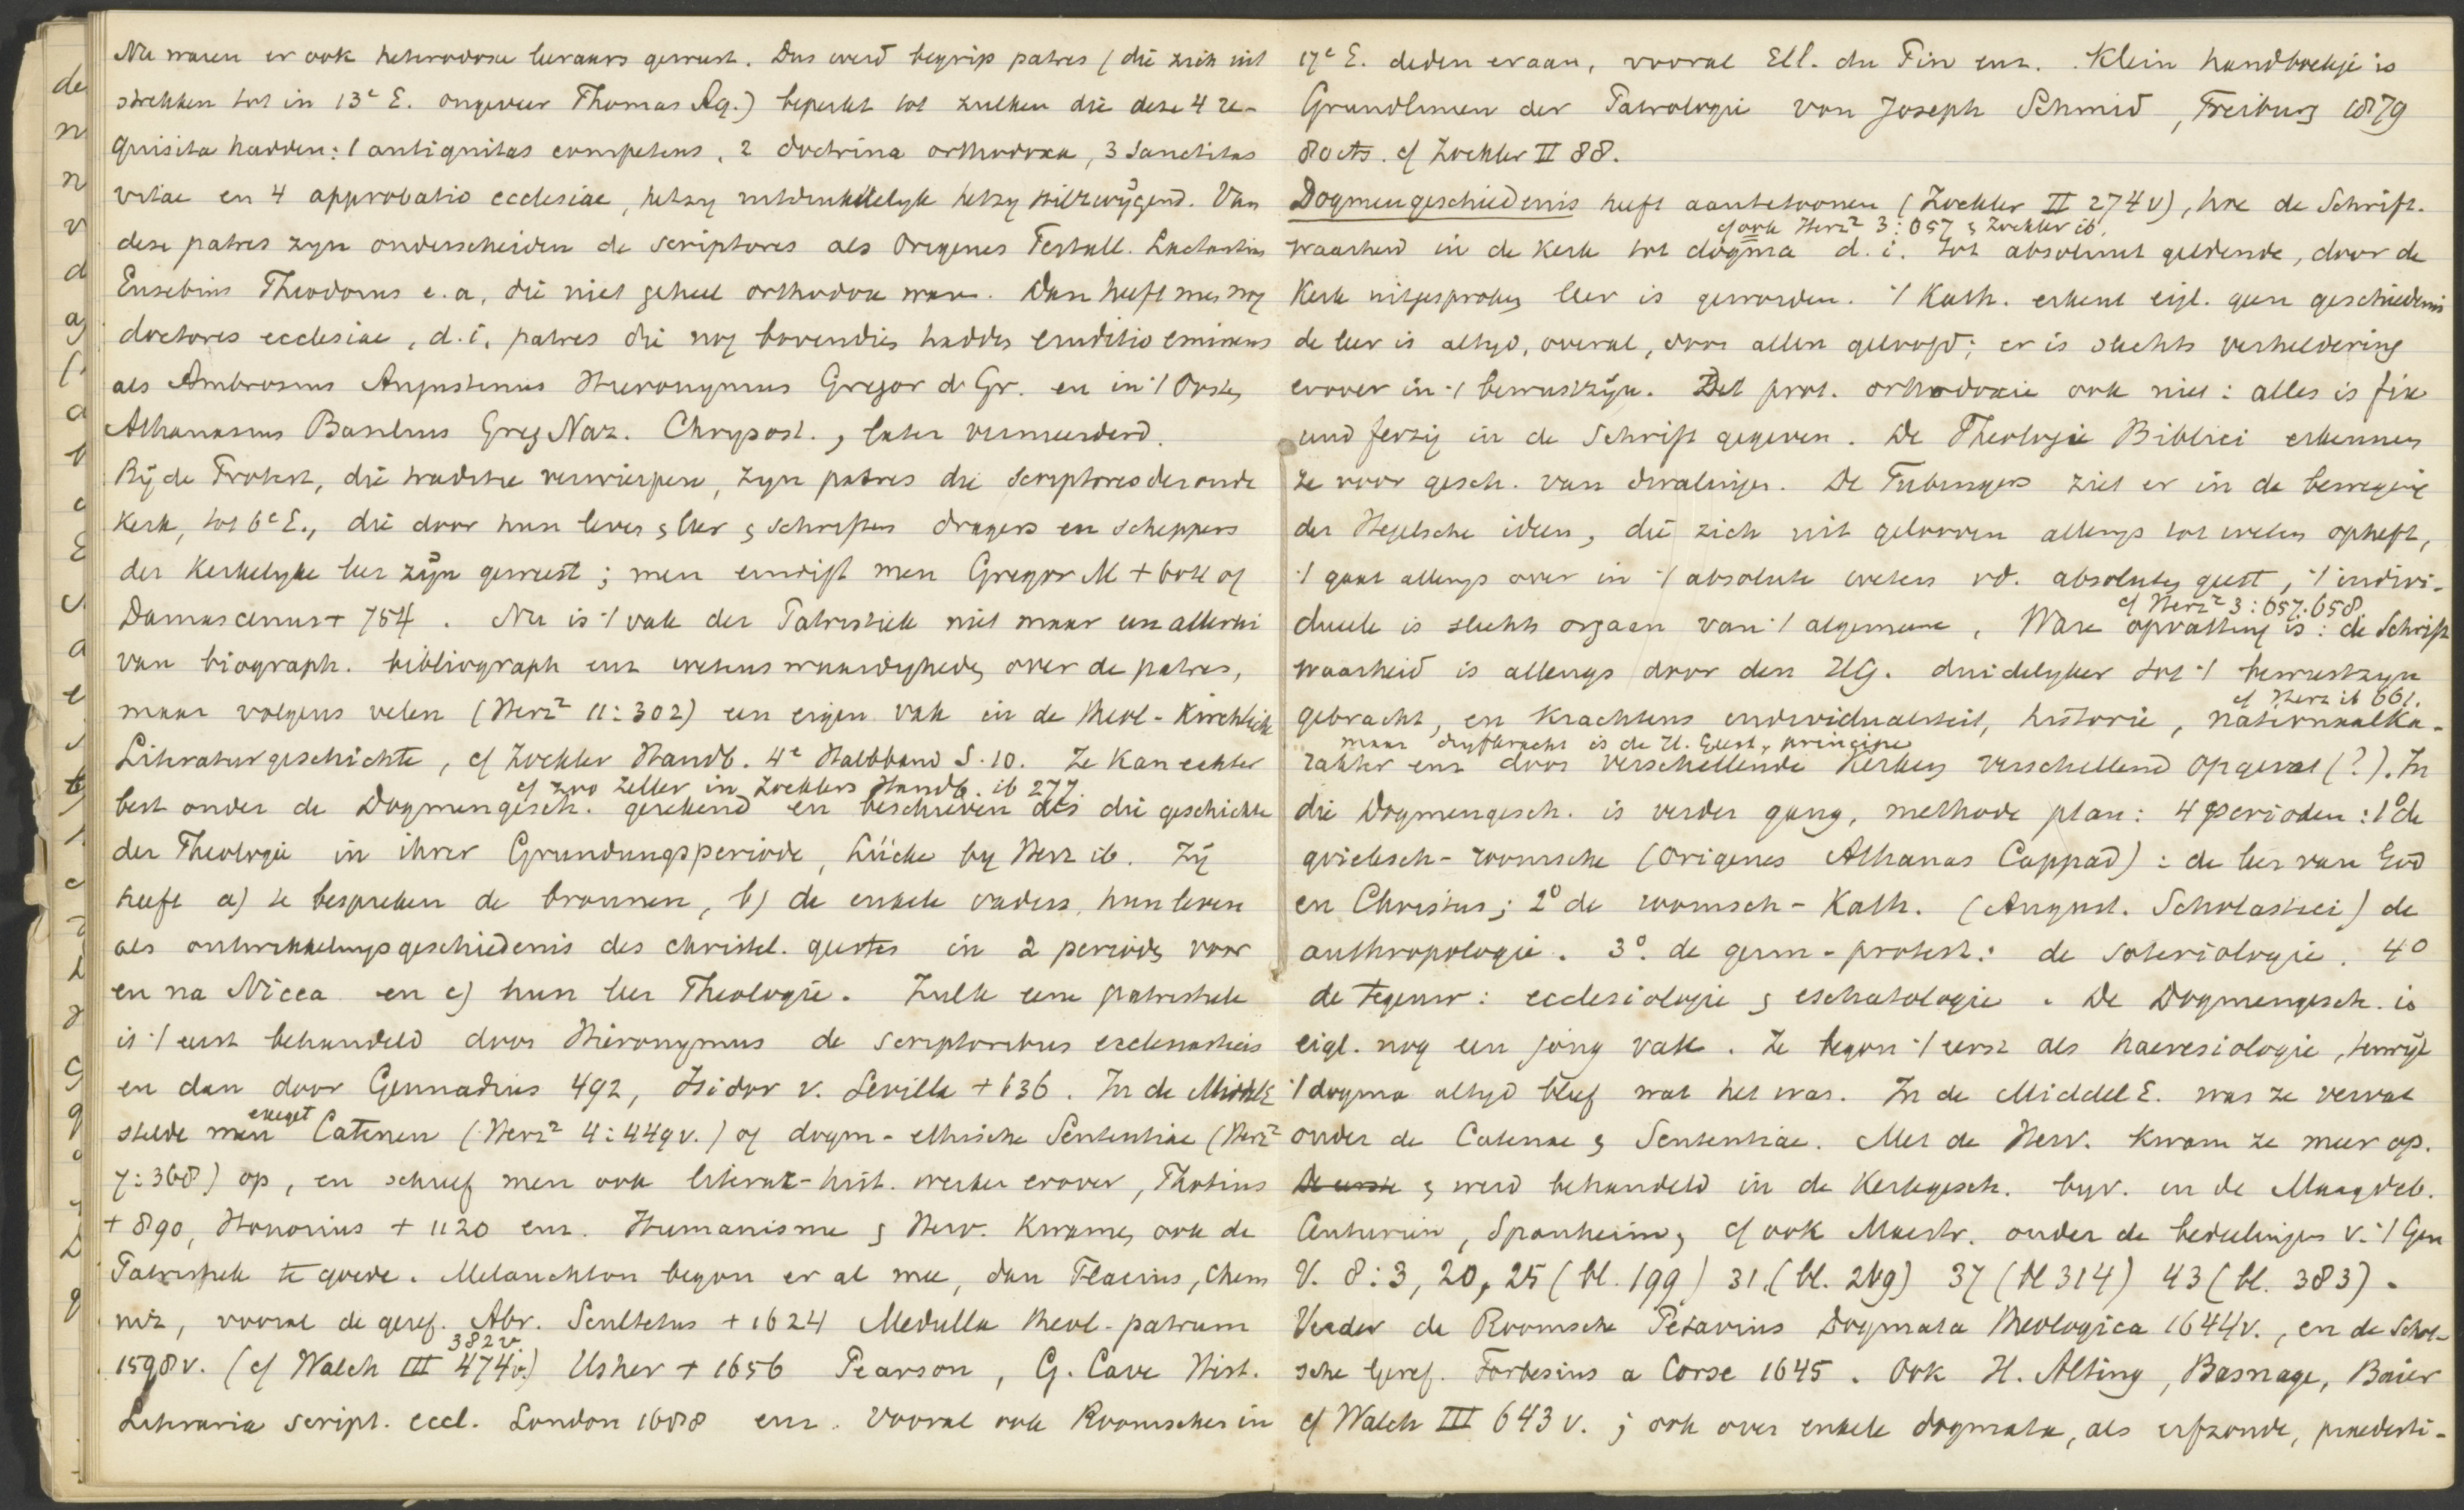 Nu waren er ook heterodoxe leeraars geweest. Dus werd begrip patres (die zich uit
strekken tot in 13e E. ongeveer Thomas Aq.) beperkt tot zulken die deze 4 re-
quisita hadden: 1 antiquitas competens, 2 doctrina orthodoxa, 3 sanctitas
vitae en 4 approbatio ecclesiae, hetzy uitdrukkelyk hetzy stilzwÿgend. Van
deze patres zyn onderscheiden de scriptores als Origenes Tertull. Lactantius
Eusebius Theodorus e.a, die niet geheel orthodox waren. Dan heeft men nog
doctores ecclesiae, d.i. patres die nog bovendien hadden eruditio eminens
als Ambrosius Augustinus Hieronymus Gregor d. Gr. en in 't Oosten
Athanasius Basilius Greg Naz. Chrysost., later vermeerderd.
Bÿ de Protest, die traditie verwierpen, zyn patres die scriptores der oude
Kerk, tot 6e E., die door hun leven & leer & schriften dragers en scheppers
der Kerkelyke leer zÿn geweest; men eindigt men Gregor M + 604 of
Damascenus + 754. Nu is 't vak der Patristiek niet maar een allerlei
van biograph. bibliograph enz wetenswaardigheden over de patres,
maar volgens velen (Herz² 11:302) een eigen vak in de theol-Kirchliche
Literaturgeschichte, cf Zockler Handb. 4e Halbband S. 10. Ze kan echter
cf zoo Zeller in Zocklers Handb. ib 277.
best onder de Dogmengesch. gerekend en beschreven als die geschichte
der Theologie in ihrer Grundungsperiode, Lücke by Herz ib. Zÿ
heeft a) te bespreken de bronnen, b) de enkele vaders, hun leven
als ontwikkelingsgeschiedenis des christel. geestes in 2 perioden voor
en na Nicea en c) hun leer Theologie. Zulk eene patristiek
is 't eerst behandeld door Hieronymus de scriptoribus ecclesiasticis
en dan door Gennadius 492, Isidor v. Sevilla + 636. In de Middel E
exeget
stelde men Catenen (Herz² 4:449v.) of dogm-ethische Sententiae (Herz²
7:368) op, en schreef men ook literar-hist. werken erover, Photius
+ 890, Honorius + 1120 enz. Humanisme & Herv. kwamen ook de
Patristiek te goede. Melanchton begon er al mee, dan Flacius, Chem
nitz, vooral de geref. Abr. Scultetus + 1624 Medulla theol-patrum
382v.
1598v. (cf Walch III 474v.) Usher + 1656 Pearson, G. Cave Hist.
Literaria script. eccl. London 1688 enz. Vooral ook Roomschen in
17e E. deden eraan, vooral Ell. du Pin enz. Klein handboekje is
Grundlinien der Patrologie von Joseph Schmid, Freiburg 1879
80 cts. cf Zockler II 88.
Dogmengeschiedenis heeft aantetoonen (Zockler II 274v), hoe de Schrift.
cf ook Herz² 3:657 & Zockler ib.
waarheid in de Kerk tot dogma d.i. tot absoluut geldende, door de
Kerk uitgesproken leer is geworden. 't Kath. erkent eigl. geen geschiedenis
de leer is altyd, overal, door allen geloofd; er is slechts verheldering
erover in 't bewustzÿn. Det prot. orthodoxie ook niet: alles is fix
und fertig in de Schrift gegeven. De Theologie Biblici erkennen
ze voor gesch. van dwalingen. De Tubingers ziet er in de beweging
der Hegelsche ideen, die zich uit gelooven allengs tot weten opheft,
't gaat allengs over in 't absolute weten vd. absoluten geest, 't indivi-
cf Herz² 3:657.658.
dueele is slechts orgaan van 't algemeene. Ware opvatting is: de Schrift
waarheid is allengs door den HG. duidelyker tot 't bewustzyn
cf Herz ib 661.
gebracht, en krachtens individualiteit, historie, nationaalka-
maar dryfkracht is de H. Geest, principe
rakter enz door verschillende Kerken verschillend opgevat (?). In
die Dogmengesch. is verder gang, methode plan: 4 perioden: 1º de
grieksch-roomsche (Origenes Athanas Cappad): de leer van God
en Christus; 2º de roomsch-Kath. (August. Scholastici) de
anthropologie. 3º. de germ-protest.: de soteriologie. 4º
de tegenw: ecclesiologie & eschatologie. De Dogmengesch. is
eigl. nog een jong vak. Ze begon 't eerst als haeresiologie, terwÿl
't dogma altyd bleef wat het was. In de Middel E. was ze vervat
onder de Catenae & Sententiae. Met de Herv. kwam ze meer op.
De eerste & werd behandeld in de Kerkgesch. byv. in de Maagdeb.
Centurien, Spanheim, cf ook Maestr. onder de bedeelingen v. 't Gen
V. 8:3, 20, 25 (bl. 199) 31. (bl. 249) 37 (bl 314) 43 (bl. 383).
Verder de Roomsche Petavius Dogmata theologica 1644v., en de Schot-
sche Geref. Forbesius a Corse 1645. Ook H. Alting, Basnage, Baier
cf Walch III 643v.; ook over enkele dogmata, als erfzonde, praedesti-